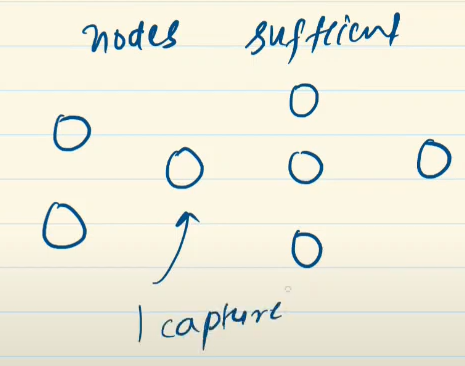 nodes sufficient
1 capture